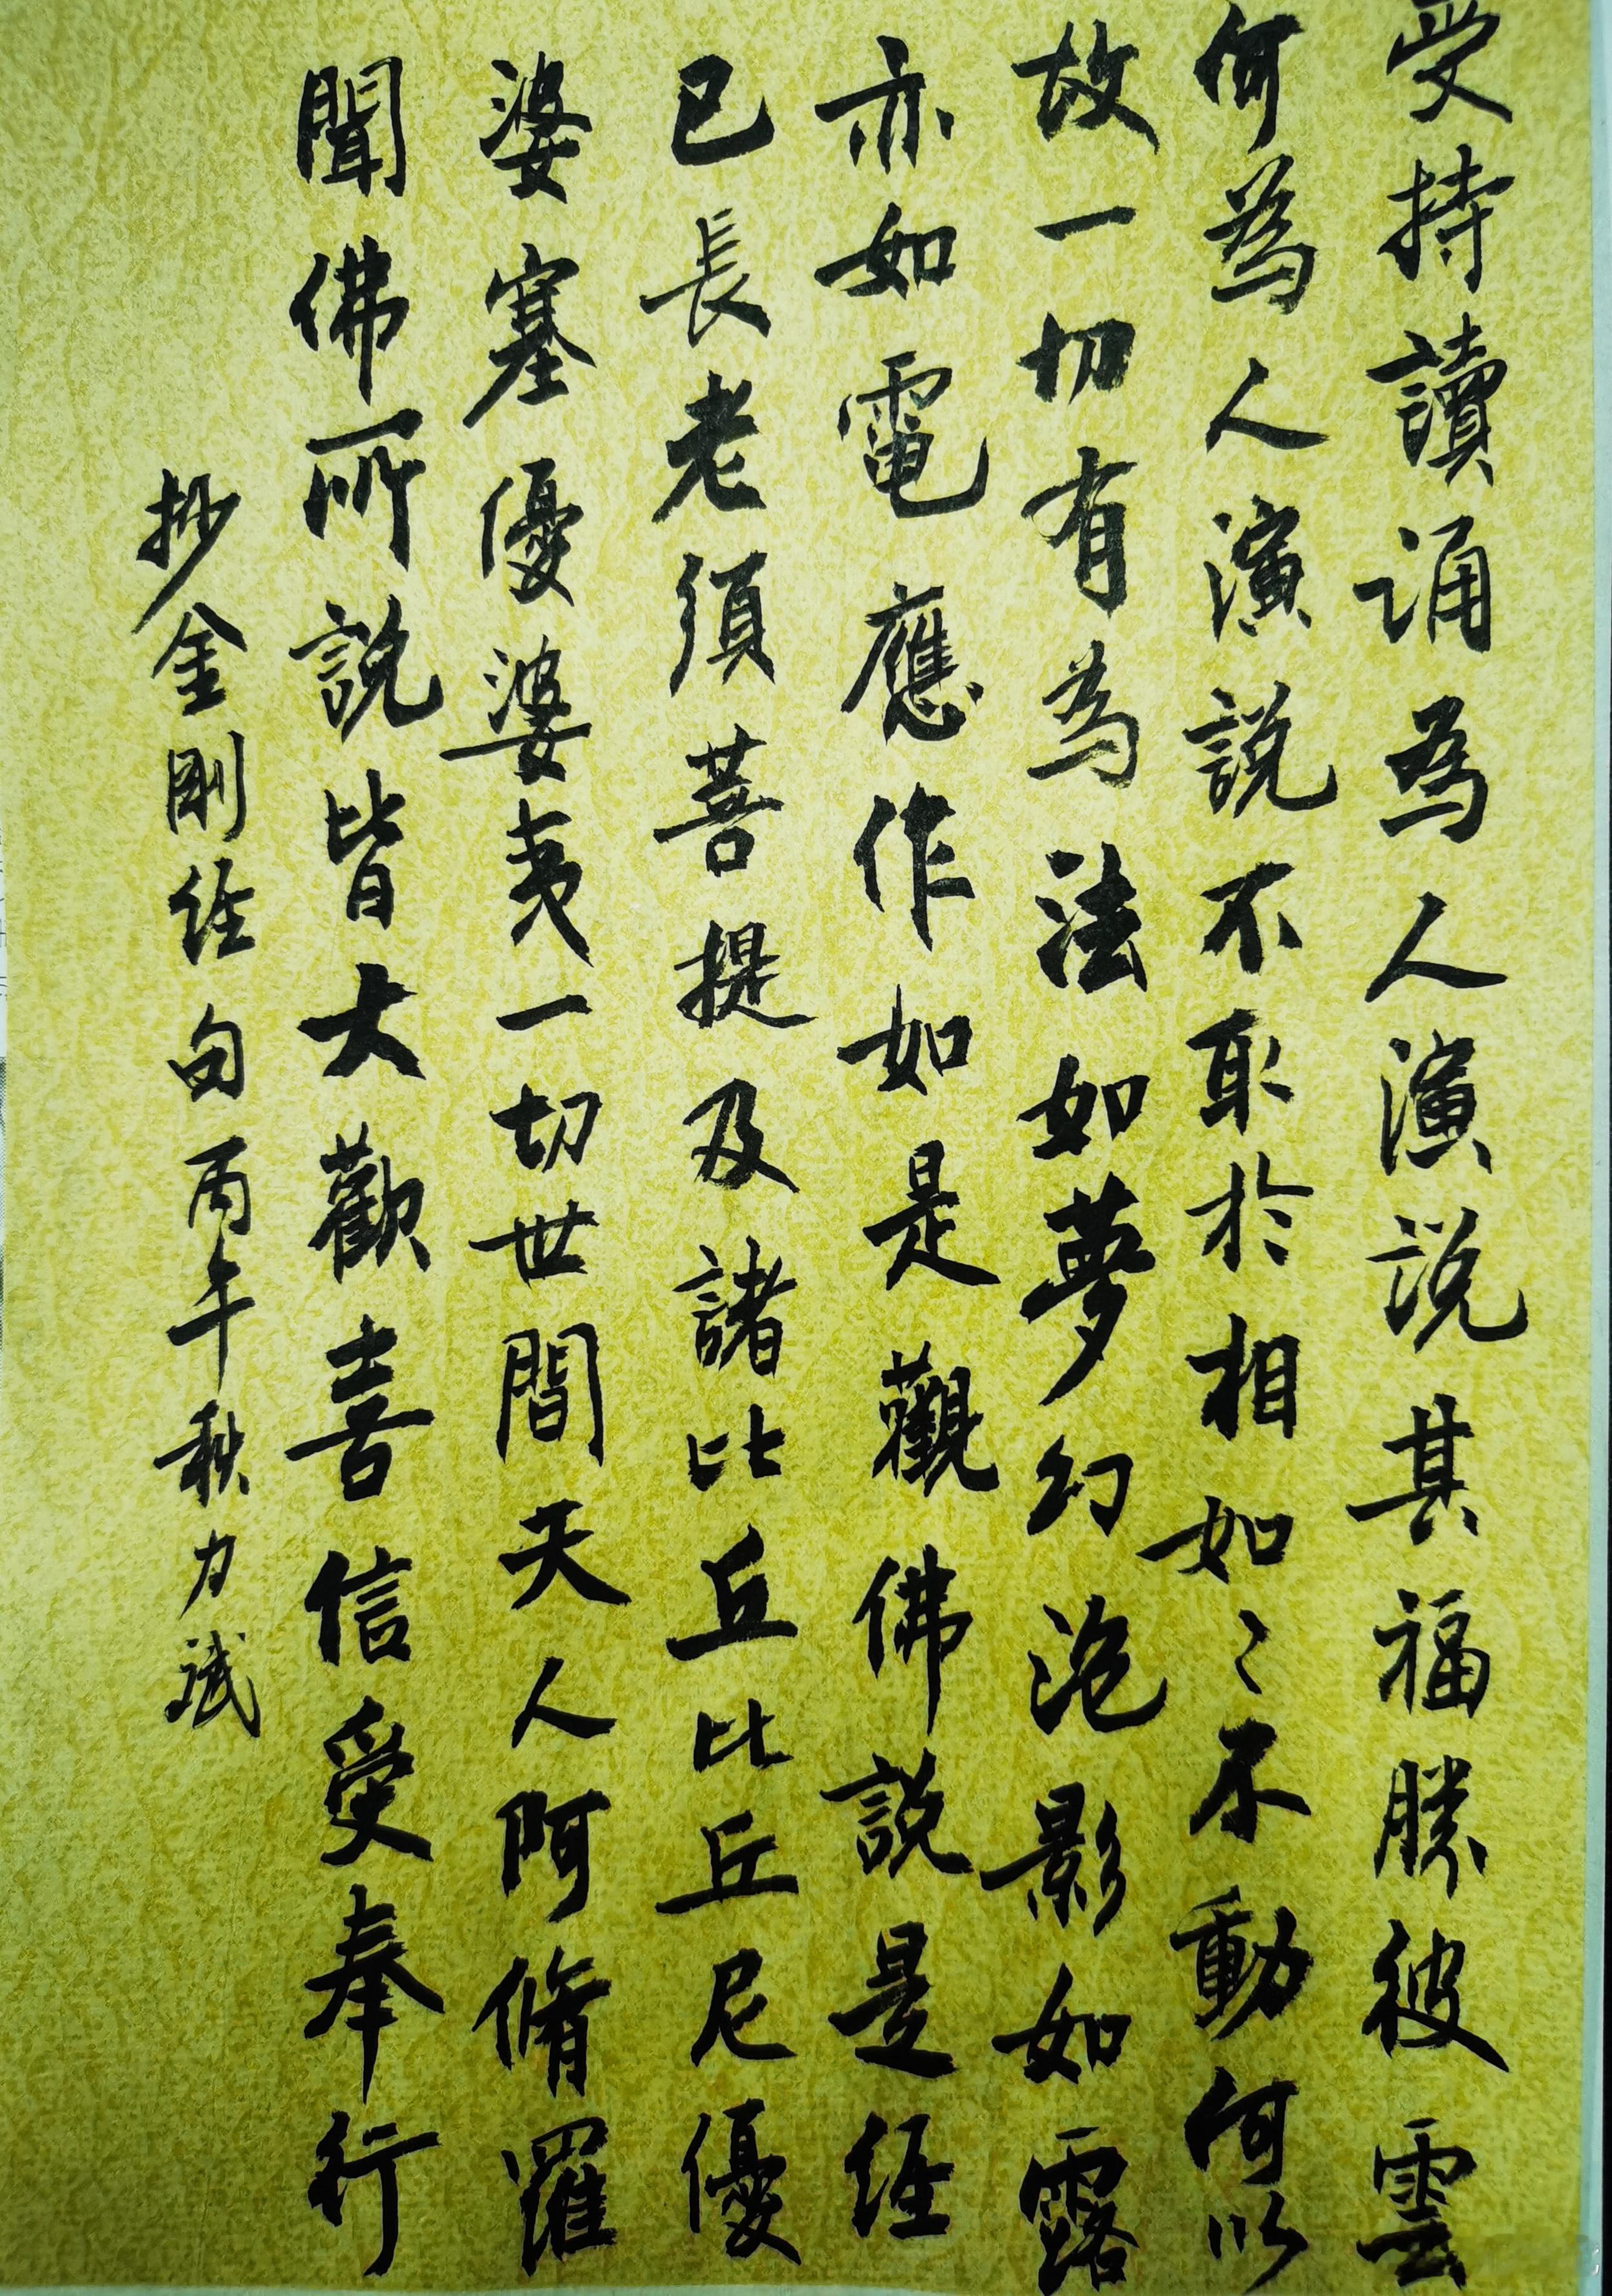 受持讀誦為人演説其福勝彼雲
何為人演説不取於相如々不動何以
故一切有為法如夢幻泡影如露
亦如電應作如是觀佛説是經
已長老須菩提及諸比丘比丘尼優
婆塞優婆夷一切世間天人阿脩羅
聞佛所説皆大歡喜信受奉行
抄金剛經句丙午秋力斌